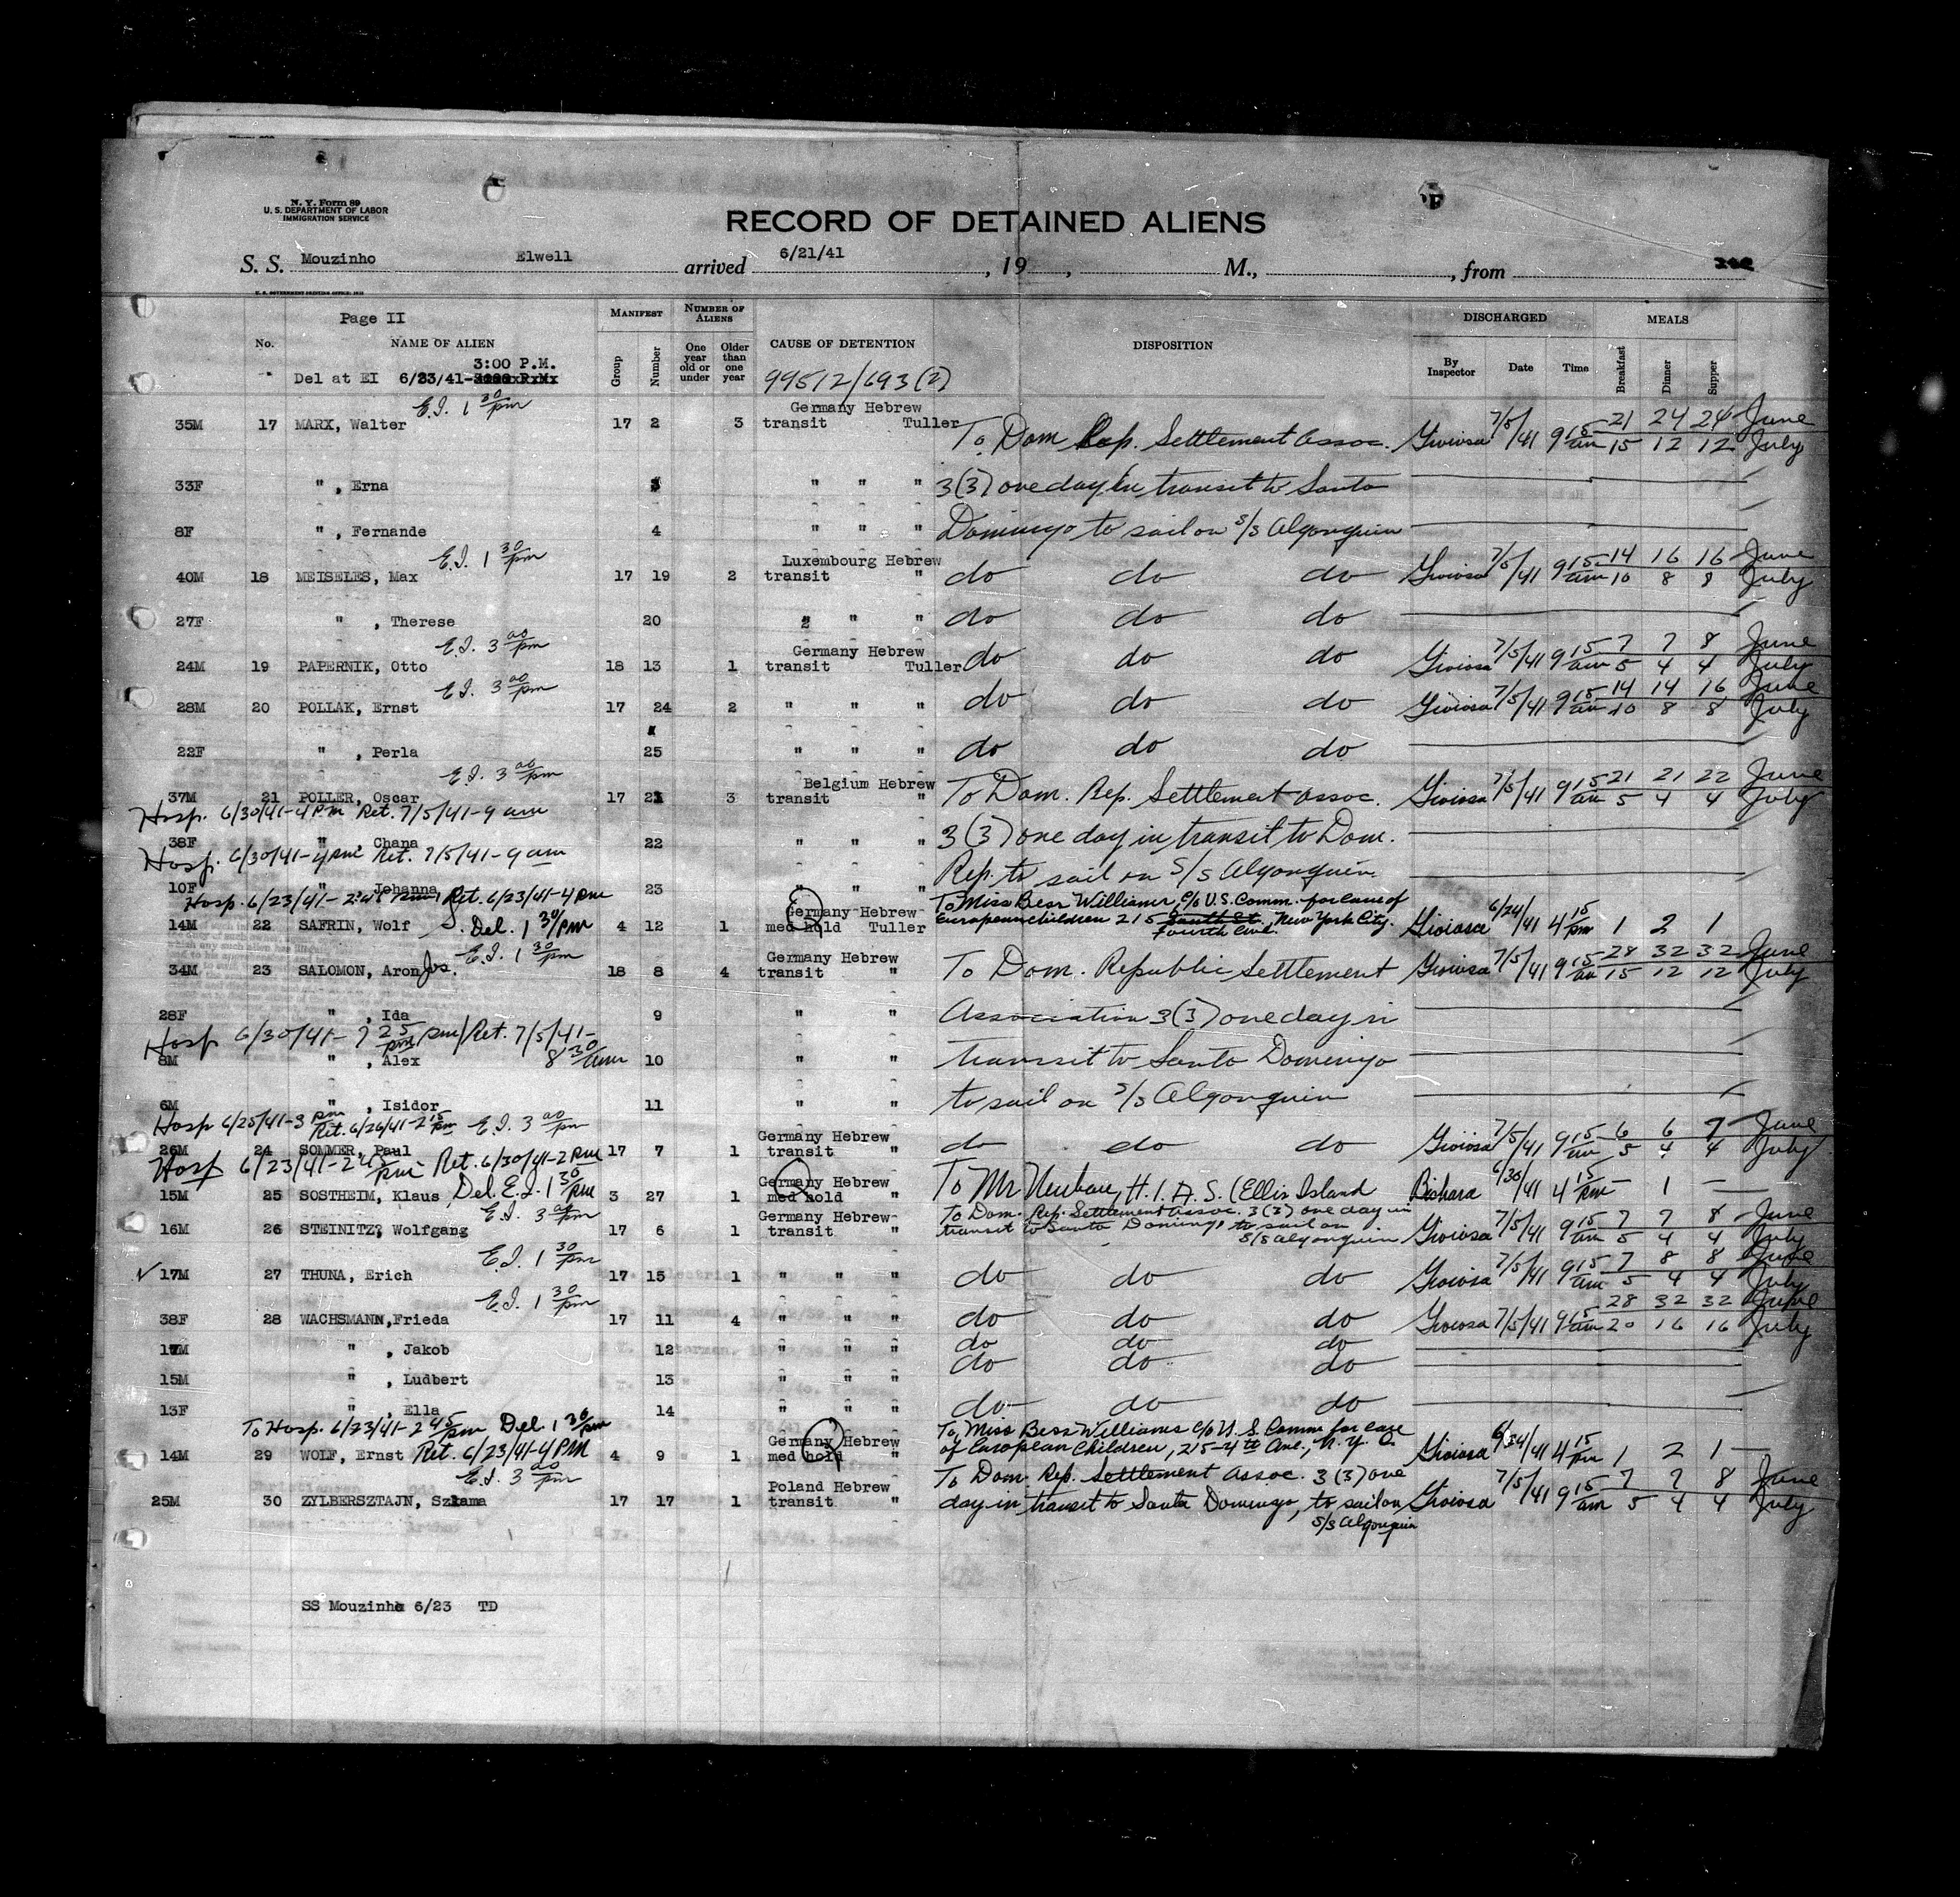 N. Y. Form 89
U. S. DEPARTMENT OF LABOR
IMMIGRATION SERVICE
RECORD OF DETAINED ALIENS
S. S. Mouzinho Elwell arrived 6/21/41, 19 , M., , from
U. S. GOVERNMENT PRINTING OFFICE
Page II
MANIFEST NUMBER OF ALIENS DISCHARGED MEALS
No. NAME OF ALIEN Group Number One year old or under Older than one year CAUSE OF DETENTION DISPOSITION By Inspector Date Time Breakfast Dinner Supper
3:00 P.M.
Del at EI 6/23/41- 99512/693 (2)
E.I. 1 30/pm Germany Hebrew 7/5/41 21 24 24 June
35M 17 MARX, Walter 17 2 3 transit Tuller To Dom Rep. Settlement Assoc. Gioiosa 9 15/am 15 12 12 July
33F " , Erna 3 " " " 3(3) one day in transit to Santo
8F " , Fernande 4 " " " Domingo to sail on S/S Algonquin
E.I. 1 30/pm Luxembourg Hebrew 14 16 16 June
40M 18 MEISELES, Max 17 19 2 transit " do do do Gioiosa 7/5/41 9 15/am 10 8 8 July
27F " , Therese 20 " " " do do do
E.I. 3 00/pm Germany Hebrew 7 7 8 June
24M 19 PAPERNIK, Otto 18 13 1 transit Tuller do do do Gioiosa 7/5/41 9 15/am 5 4 4 July
E.I. 3 00/pm 14 14 16 June
28M 20 POLLAK, Ernst 17 24 2 " " " do do do Gioiosa 7/5/41 9 15/am 10 8 8 July
22F " , Perla 25 " " " do do do
E.I. 3 00/pm Belgium Hebrew 21 21 22 June
37M 21 POLLER, Oscar 17 21 3 transit " To Dom. Rep. Settlement Assoc. Gioiosa 7/5/41 9 15 5 4 4 July
Hosp. 6/30/41-4 Pm Ret. 7/5/41-9 am
38F " Chana 22 " " " 3(3) one day in transit to Dom.
Hosp. 6/30/41-4 pm Ret. 7/5/41-9 am
10F " Johanna 23 " " " Rep. to sail on S/S Algonquin
Hosp. 6/23/41- 2:45 Ret. 6/23/41-4 pm Germany Hebrew To Miss Bess Williams, c/o U.S. Comm. for care of
14M 22 SAFRIN, Wolf Del. 1 30/pm 4 12 1 med hold Tuller European children 215 South St. Fourth Ave. New York City. Gioiosa 6/24/41 4 15/pm 1 2 1
E.I. 1 30/pm Germany Hebrew 28 32 32 June
34M 23 SALOMON, Aron Jos. 18 8 4 transit " To Dom. Republic Settlement Gioiosa 7/5/41 9 15/am 15 12 12 July
28F " , Ida 9 " " Association 3(3) one day in
Hosp 6/30/41- 7 25/pm Ret. 7/5/41- 8 30/am
8M " , Alex 10 " " transit to Santo Domingo
6M " , Isidor 11 " " to sail on S/S Algonquin
Hosp 6/25/41-3 pm Ret. 6/26/41-2 15/pm E.I. 3 00/pm Germany Hebrew 6 6 7 June
26M 24 SOMMER, Paul 17 7 1 transit " do do do Gioiosa 7/5/41 9 15/am 5 4 4 July
Hosp 6/23/41-2 45/pm Ret. 6/30/41-2 pm Germany Hebrew
15M 25 SOSTHEIM, Klaus Del. E.I. 1 30/pm 3 27 1 med hold " To Mr Neubau, H.I.A.S. (Ellis Island Bishara 6/30/41 4 15/pm – 1 –
E.I. 3 00/pm Germany Hebrew To Dom. Rep. Settlement Assoc. 3(3) one day in 7 7 8 June
16M 26 STEINITZ, Wolfgang 17 6 1 transit " transit to Santo Domingo to sail on S/S Algonquin Gioiosa 7/5/41 9 15/am 5 4 4 July
E.I. 1 30/pm 7 8 8 June
17M 27 THUNA, Erich 17 15 1 " " " do do do Gioiosa 7/5/41 9 15/am 5 4 4 July
E.I. 1 30/pm 28 32 32 June
38F 28 WACHSMANN,Frieda 17 11 4 " " " do do do Gioiosa 7/5/41 9 15/am 20 16 16 July
17M " , Jakob 12 " " " do do do
15M " , Ludbert 13 " " " do do do
13F " , Ella 14 " " " do do do
To Hosp. 6/23/41-2 45/pm Del. 1 30/pm Germany Hebrew To Miss Bess Williams c/o U. S. Comm for care
14M 29 WOLF, Ernst Ret. 6/23/41-4 PM 4 9 1 med hold " of European Children, 215-4th Ave., N.Y.C. Gioiosa 6/24/41 4 15/pm 1 2 1
E.I. 3 00/pm Poland Hebrew To Dom. Rep. Settlement Assoc. 3(3) one 7 7 8 June
25M 30 ZYLBERSZTAJN, Szlama 17 17 1 transit " day in transit to Santo Domingo, to sail on S/S Algonquin Gioiosa 7/5/41 9 15/am 5 4 4 July
SS Mouzinho 6/23 TD